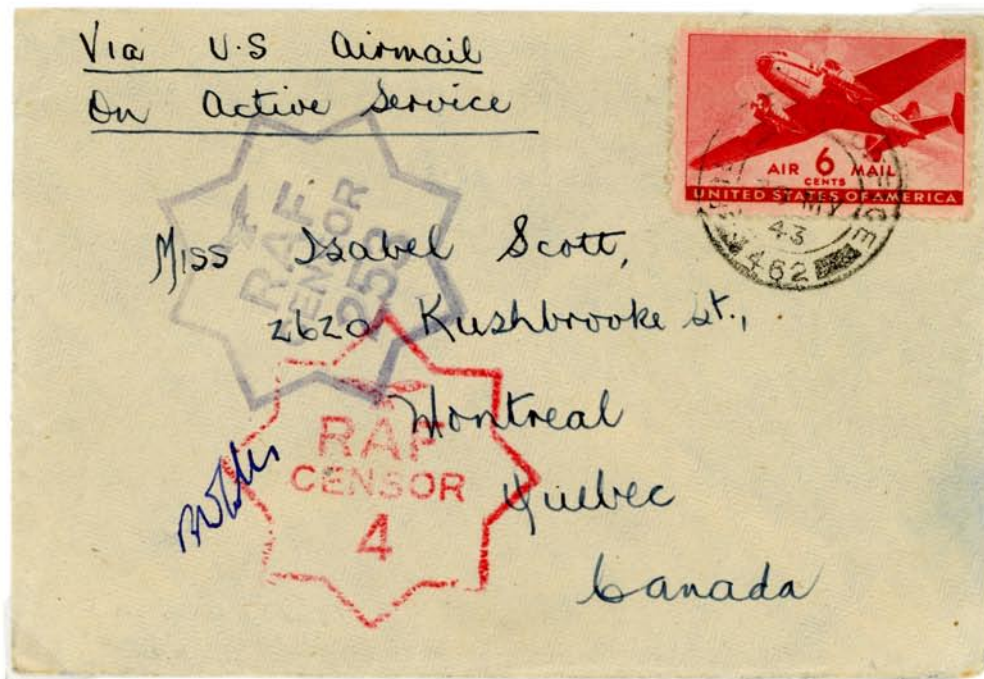 Via U.S Airmail
On Active Service
AIR 6 MAIL
CENTS
UNITED STATES OF AMERICA
MY
43
462
RAF
CENSOR
Miss Isabel Scott,
2620 Kushbrooke St.,
Montreal
Quebec
Canada
RAF
CENSOR
4